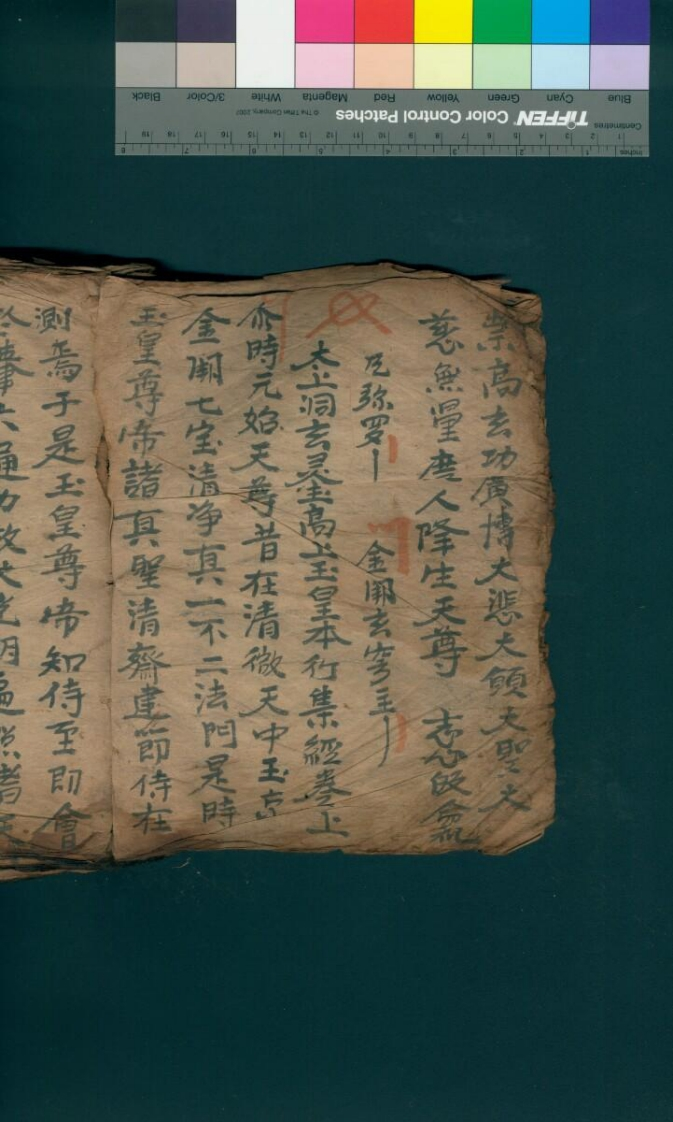 崇高玄功廣博大悲大願大聖大
慈無量度人降生天尊 志心皈命礼
旡弥罗 金闕玄穹主
太上洞玄灵宝高上玉皇本行集經卷上
尒時元始天尊昔在清微天中玉京
金闕七宝清净真一不二法門是時
玉皇尊帝諸真聖清齋建節侍在
測焉于是玉皇尊帝知侍至即會
六通力放大光明遍照諸
Centimetres 1 2 3 4 5 6 7 8 9 10 11 12 13 14 15 16 17 18 19
Inches 1 2 3 4 5 6 7 8
TIFFEN Color Control Patches © The Tiffen Company, 2007
Blue Cyan Green Yellow Red Magenta White 3/Color Black